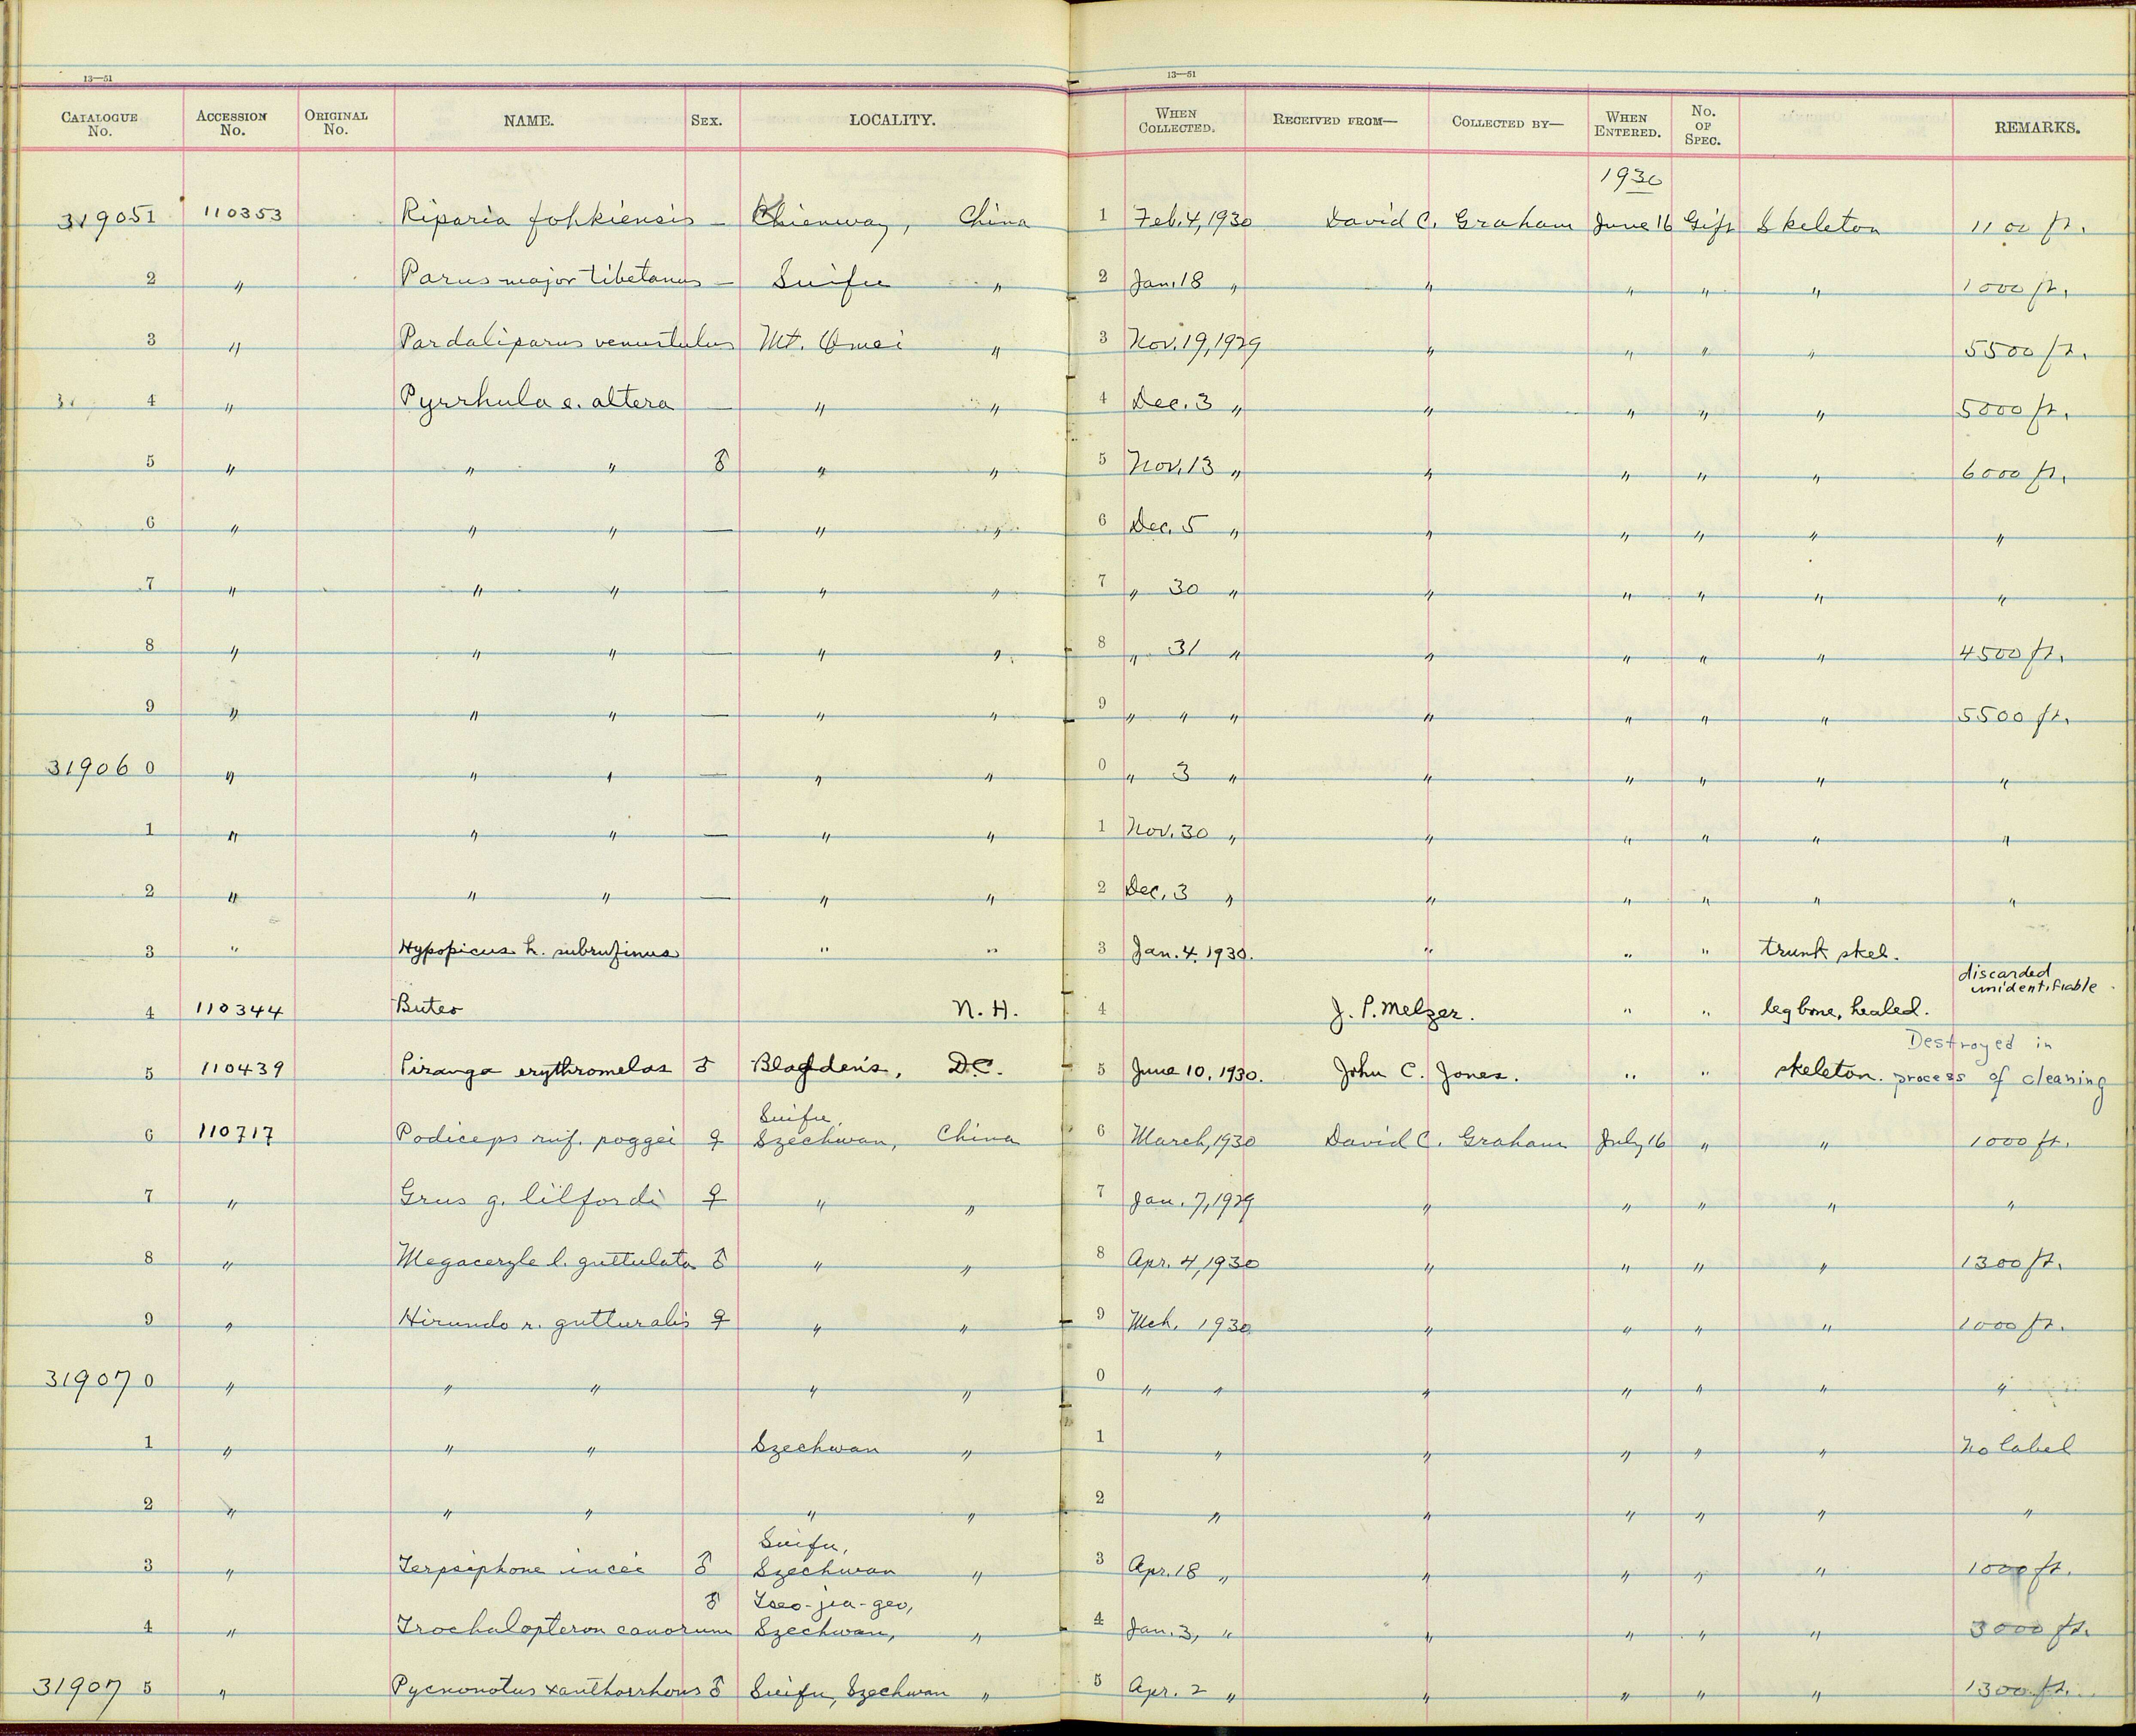 13—51 13—51
CATALOGUE No. ACCESSION No. ORIGINAL No. NAME. SEX. LOCALITY. WHEN COLLECTED. RECEIVED FROM— COLLECTED BY— WHEN ENTERED. No. OF SPEC. REMARKS.
1930
319051 110353 Riparia fohkiensis — Chienway, China 1 Feb. 4, 1930 David C. Graham June 16 Gift Skeleton 1100 ft.
2 " Parus major tibetanus — Suifu " 2 Jan. 18 " " " " " 1000 ft.
3 " Pardaliparus venustulus Mt. Omei " 3 Nov. 19, 1929 " " " " 5500 ft.
4 " Pyrrhula e. altera — " " 4 Dec. 3 " " " " " 5000 ft.
5 " " " ♂ " " 5 Nov. 13 " " " " " 6000 ft.
6 " " " — " " 6 Dec. 5 " " " " " "
7 " " " — " " 7 " 30 " " " " " "
8 " " " — " " 8 " 31 " " " " " 4500 ft.
9 " " " — " " 9 " " " " " " " 5500 ft.
319060 " " " — " " 0 " 3 " " " " " "
1 " " " — " " 1 Nov. 30 " " " " " "
2 " " " — " " 2 Dec. 3 " " " " " "
3 " Hypopicus h. subrufinus " " 3 Jan. 4, 1930. " " " trunk skel.
discarded
unidentifiable.
4 110344 Buteo N. H. 4 J. P. Melzer. " " leg bone, healed.
Destroyed in
5 110439 Piranga erythromelas ♂ Blagden's, D.C. 5 June 10, 1930. John C. Jones. " " skeleton. process of cleaning
Suifu,
6 110717 Podiceps ruf. poggei ♀ Szechwan, China 6 March, 1930 David C. Graham July 16 " " 1000 ft.
7 " Grus g. lilfordi ♀ " " 7 Jan. 7, 1929 " " " " "
8 " Megaceryle l. guttulata ♂ " " 8 Apr. 4, 1930 " " " " 1300 ft.
9 " Hirundo r. gutturalis ♀ " " 9 Mch. 1930 " " " " 1000 ft.
319070 " " " " " 0 " " " " " " "
1 " " " Szechwan " 1 " " " " " No label
2 " " " " " 2 " " " " " "
Suifu,
3 " Terpsiphone incei ♂ Szechwan " 3 Apr. 18 " " " " " 1000 ft.
♂ Tseo-jia-geo,
4 " Trochalopteron canorum Szechwan, " 4 Jan. 3, " " " " " 3000 ft.
319075 " Pycnonotus xanthorrhous ♂ Suifu, Szechwan " 5 Apr. 2 " " " " " 1300 ft.